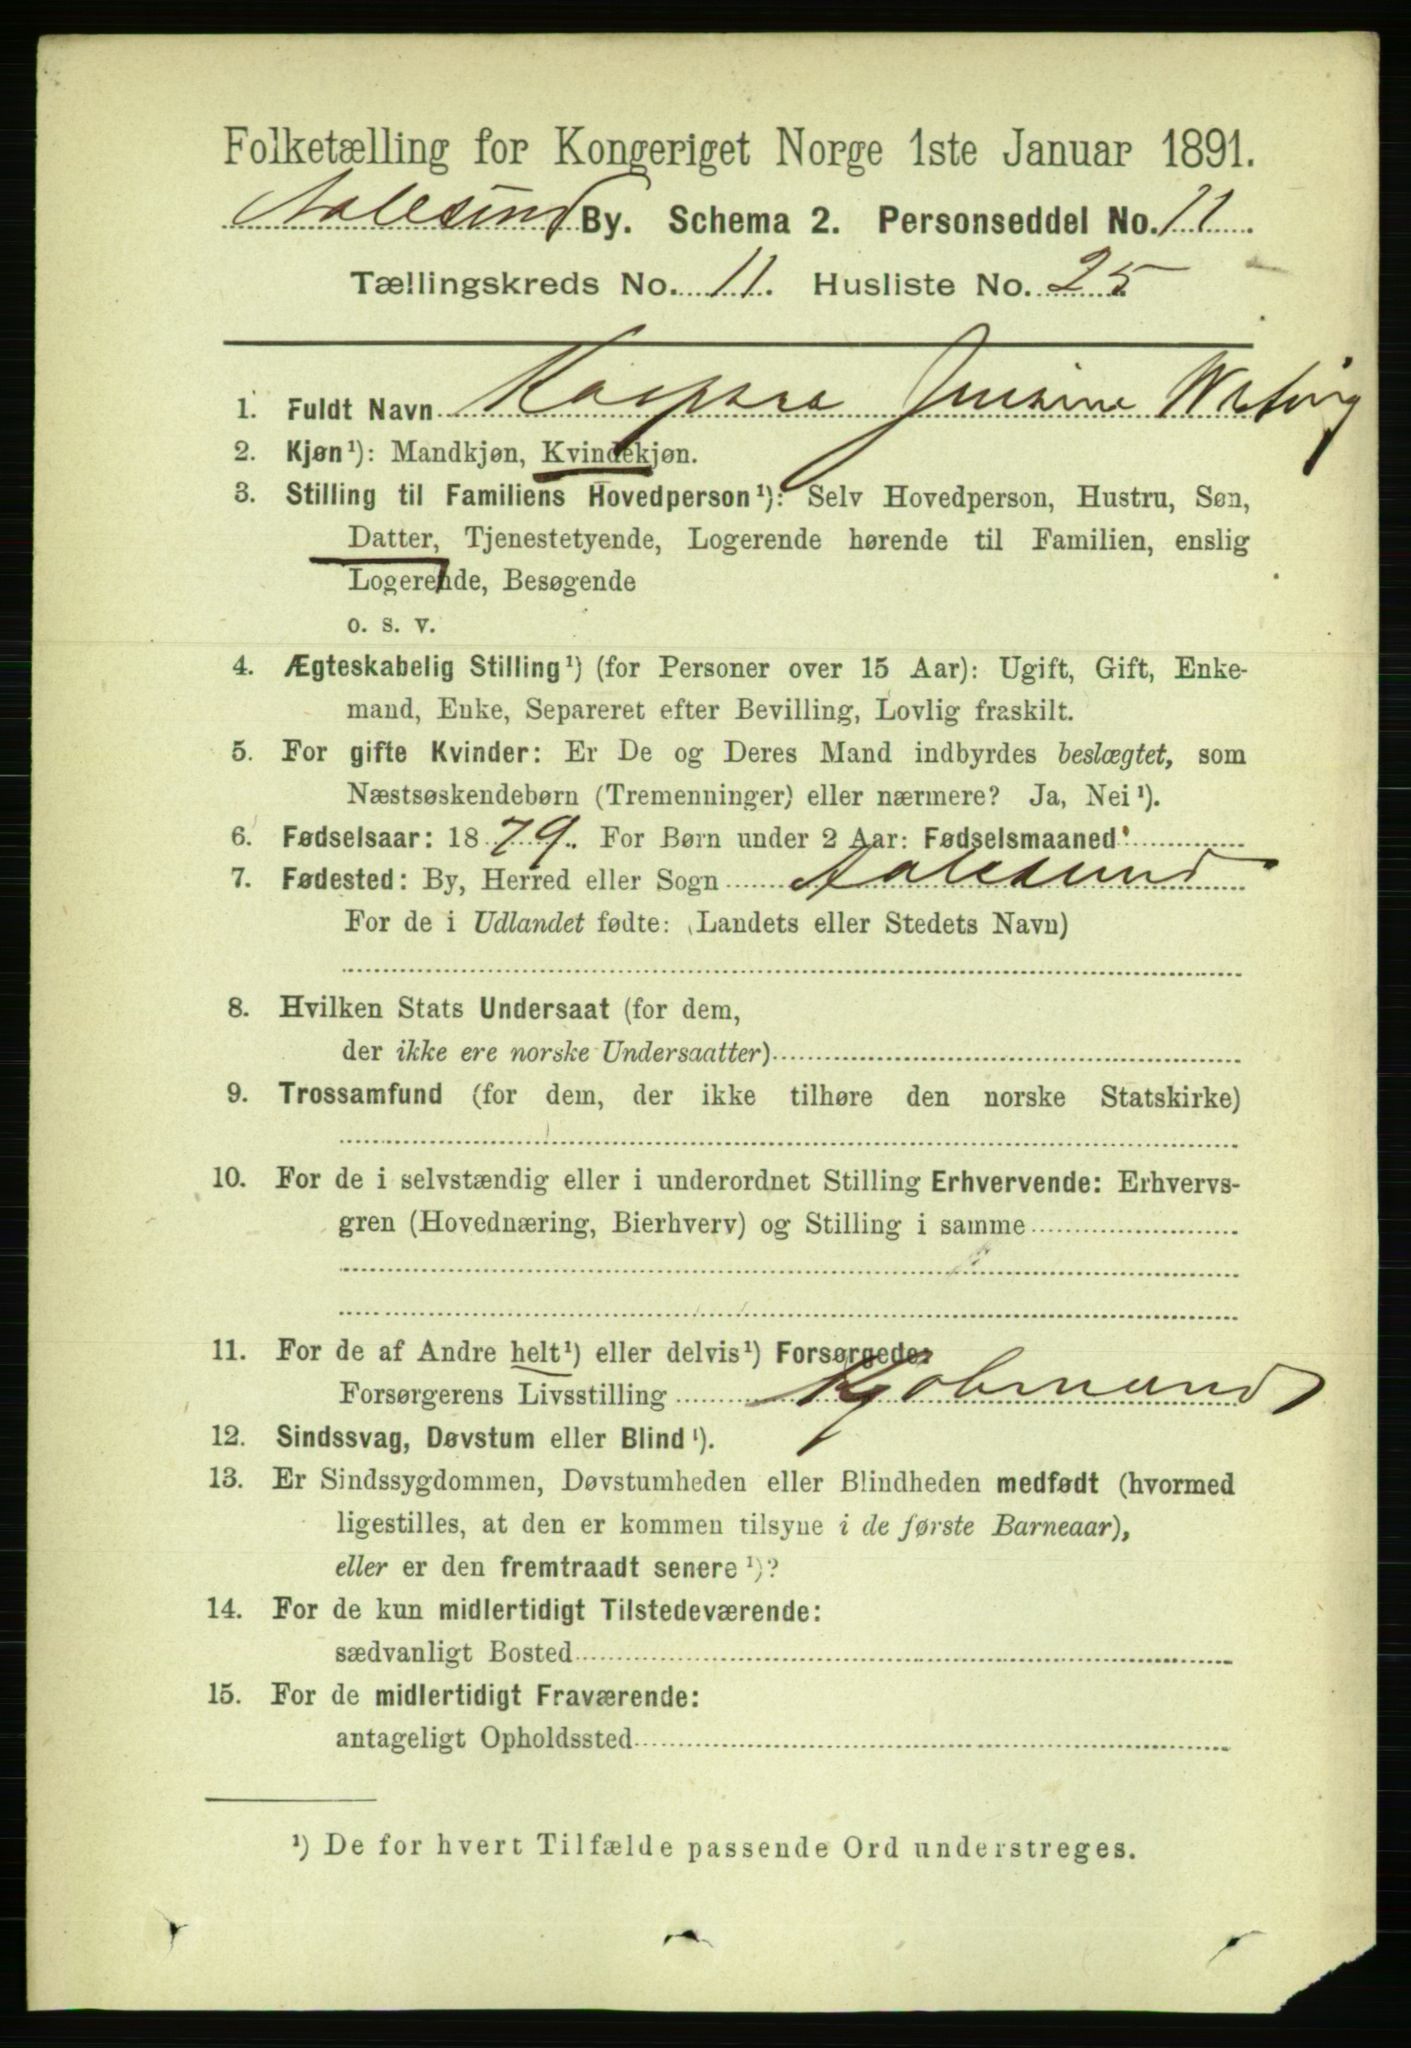 Folketælling for Kongeriget Norge 1ste Januar 1891.
Aalesund By. Schema 2. Personseddel No. 11
Tællingskreds No. 11. Husliste No. 25
1. Fuldt Navn Kaspara
2. Kjøn¹): Mandkjøn, Kvindekjøn.
3. Stilling til Familiens Hovedperson¹): Selv Hovedperson, Hustru, Søn,
Datter, Tjenestetyende, Logerende hørende til Familien, enslig
Logerende, Besøgende
o. s. v.
4. Ægteskabelig Stilling¹) (for Personer over 15 Aar): Ugift, Gift, Enke-
mand, Enke, Separeret efter Bevilling, Lovlig fraskilt.
5. For gifte Kvinder: Er De og Deres Mand indbyrdes beslægtet, som
Næstsøskendebørn (Tremenninger) eller nærmere? Ja, Nei¹).
6. Fødselsaar: 1879. For Børn under 2 Aar: Fødselsmaaned
7. Fødested: By, Herred eller Sogn Aalesund
For de i Udlandet fødte: (Landets eller Stedets Navn)
8. Hvilken Stats Undersaat (for dem,
der ikke ere norske Undersaatter)
9. Trossamfund (for dem, der ikke tilhøre den norske Statskirke)
10. For de i selvstændig eller i underordnet Stilling Erhvervende: Erhvervs-
gren (Hovednæring, Bierhverv) og Stilling i samme
11. For de af Andre helt¹) eller delvis¹) Forsørgede:
Forsørgerens Livsstilling Kjøbmand
12. Sindssvag, Døvstum eller Blind¹).
13. Er Sindssygdommen, Døvstumheden eller Blindheden medfødt (hvormed
ligestilles, at den er kommen tilsyne i de første Barneaar),
eller er den fremtraadt senere¹)?
14. For de kun midlertidigt Tilstedeværende:
sædvanligt Bosted
15. For de midlertidigt Fraværende:
antageligt Opholdssted
¹) De for hvert Tilfælde passende Ord understreges.